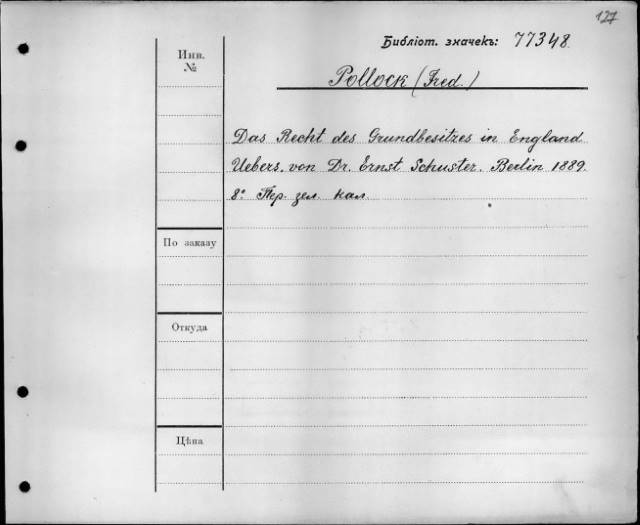 127
Библіот. значекъ: 77348.
Инв.
№
Pollock (Fred.)
Das Recht des Grundbesitzes in England
Uebers. von Dr. Ernst Schuster. Berlin 1889.
8º Пер. зел. кал.
По заказу
Откуда
Цѣна